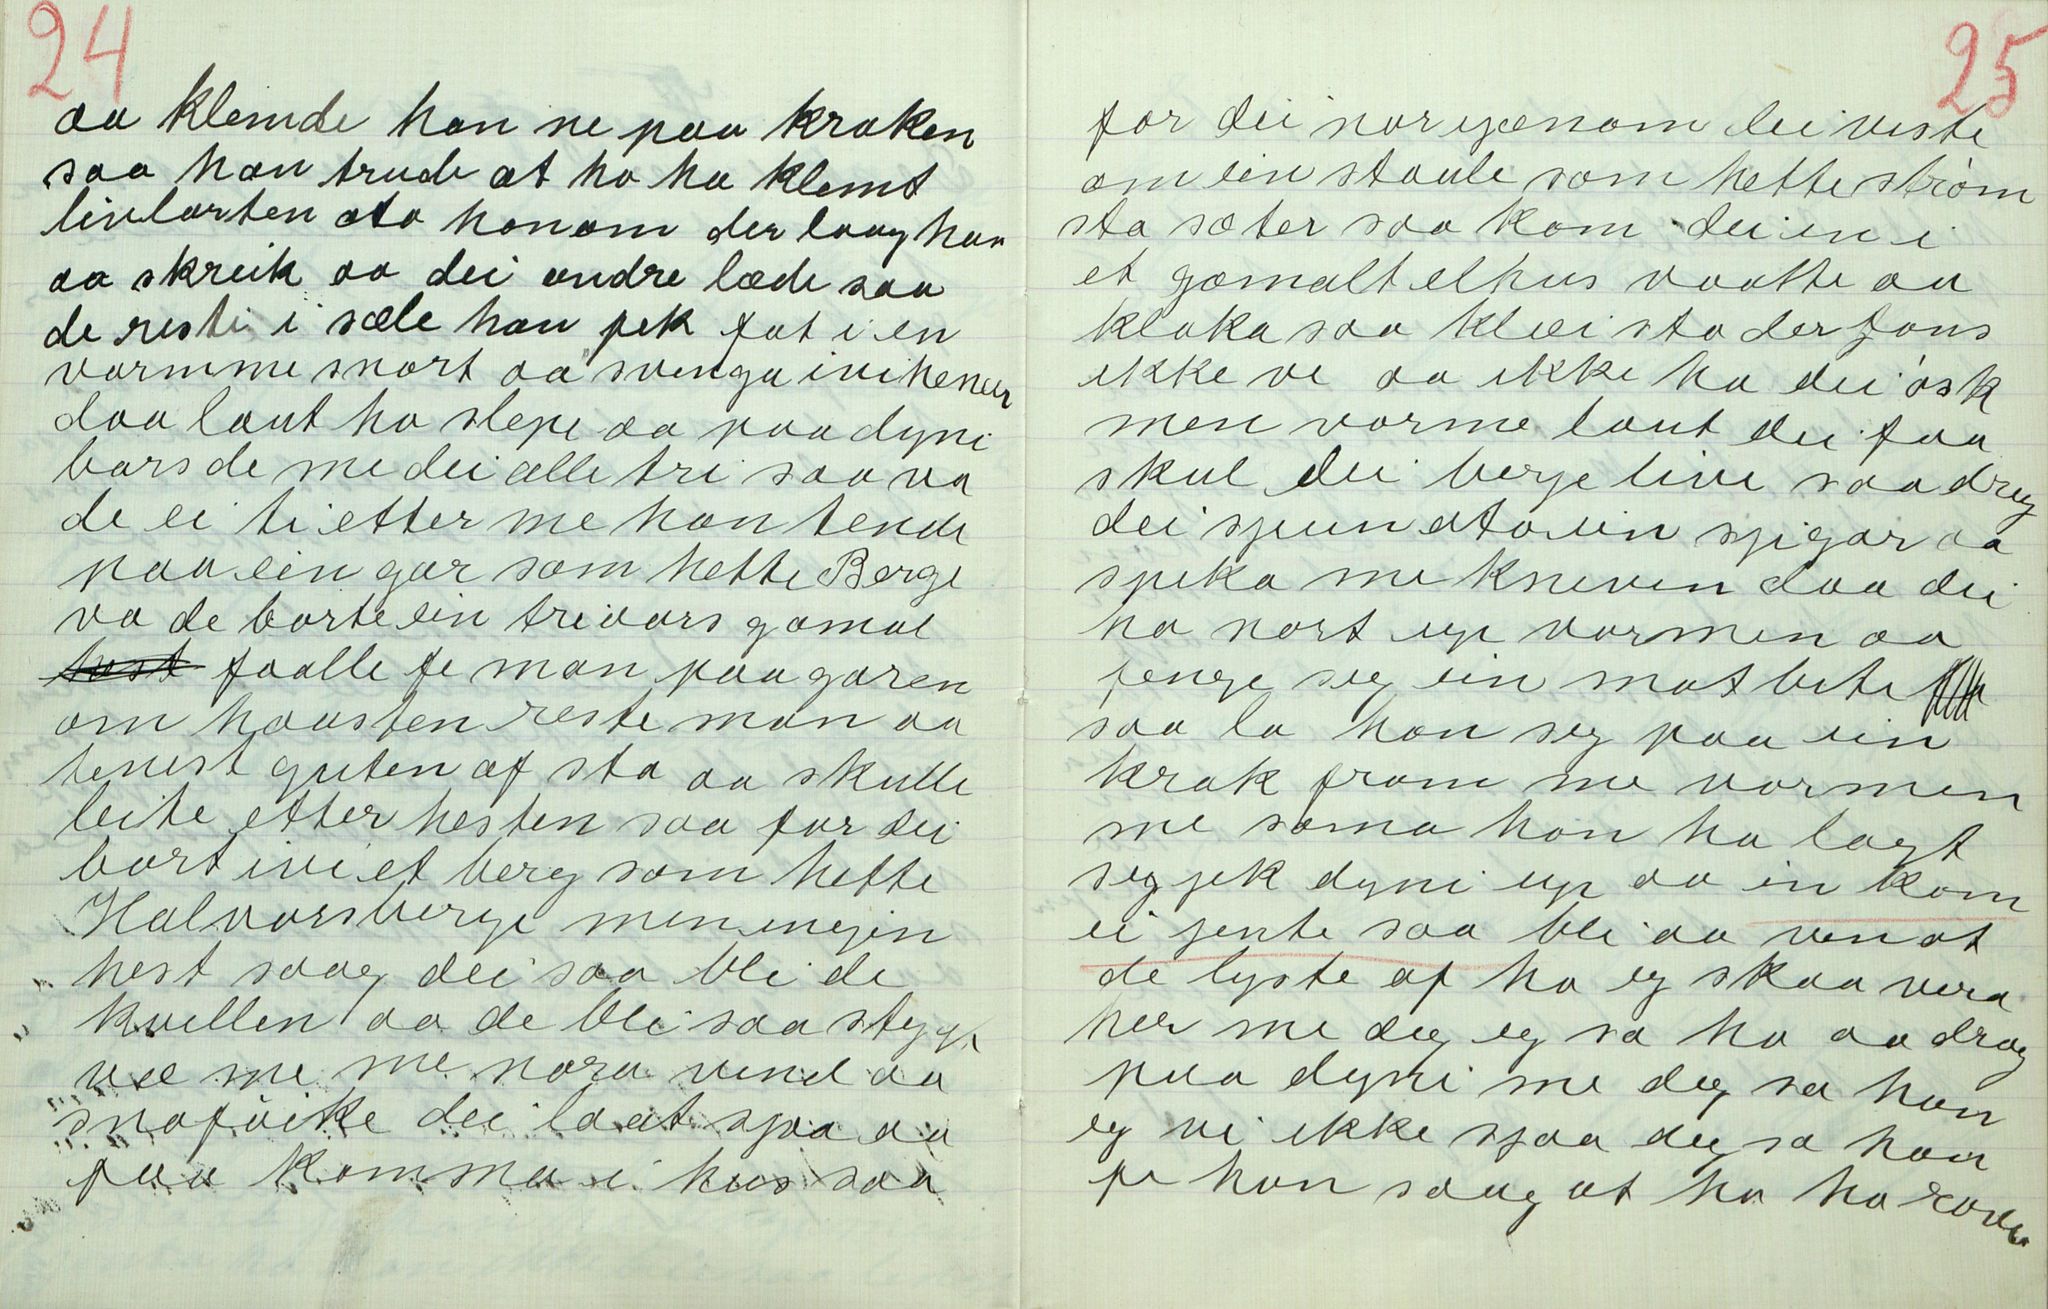 24
aa klemde han ne paa kraken
saa han trude at ho ha klemt
livlorten ato honom der laag han
aa skreik aa dei andre læde saa
de reste i sæle han fek fat i en
varmme snort aa svenga ivi heneir
daa laut ho slepe aa paa dyni
bars de me dei alle tri saa va
de ei ti etter me han tende
paa ein gar som hette Berge
va de borte ein treaars gamal
faalle fe man paa garen
om haausten reste man aa
tenest guten af sta aa skulle
leite etter hesten saa for dei
bort ivi et berg som hette
Halvorsberge men ingin
hest saag dei saa blei de
kvellen aa de blei saa stygt
vee me me nora vind aa
snøfoike dei laat sjaa aa
faa komma i hus saa
25
for dei norigænom dei viste
om ein staule som hette strøm
stø sæter saa kom dei in i
et gamalt elhus vaatte aa
kloka saa klæi sto der fans
ikke ve aa ikke ha dei øsk
men varme laut dei faa
skul dei berge live saa dreg
dei speun ato ein spigar aa
speka me kneven daa dei
ha nort up varmen aa
fenge seg ein mat bete
saa la han seg paa ein
krak fram me varmen
me soma han ha lagt
seg gek dyni up aa in kom
ei jente saa blei aa ven at
de lyste af ho eg skaa vera
her me deg eg sa ho aa drog
paa dyni me deg sa han
eg vi ikke sjaa deg sa han
fe han saag at ho ha rove